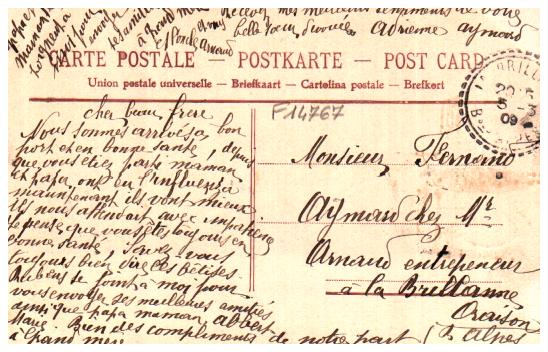 recevez mes meilleurs sentiments de votre
belle soeur dévouée Adrienne Aymard
CARTE POSTALE — POSTKARTE — POST CARD
Union postale universelle — Briefkaart — Cartolina postale — Brefkort
LA BRILL
20
5 - 3
09
F14767
cher beau frere
Nous sommes arrivés a bon
port et en bonne santé, depuis
que vous etiez parti maman
et papa, ont eu l'influenza
maintenant ils vont mieux
ils nous attendait avec impatience
je pense que vous êtes toujours en
bonne santé
toujours bien dire des bêtises
Rubens se joint a moi pour
vous envoyer ses meilleures amitiés
ainsi que papa maman albert
Marie. Bien des compliments de notre part
a Grand mere
Monsieur Fernand
Aymard chez Mr
Arnaud entrepeneur
à la Brillanne
Oraison
B. Alpes